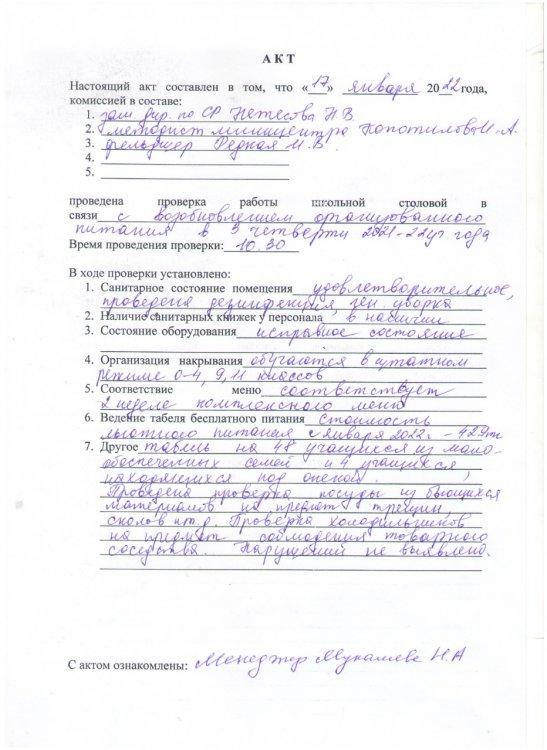 АКТ
Настоящий акт составлен в том, что «17» января 2022 года,
комиссией в составе:
1. зам. дир. по СР Нетесова Н.В.
2. методист миницентра Копотилова И.А.
3. фельдшер Редкая И.В
4.
5.
проведена проверка работы школьной столовой в
связи с возобновлением организованного
питания в 3 четверти 2021-22 уч года
Время проведения проверки: 10.30
В ходе проверки установлено:
1. Санитарное состояние помещения удовлетворительное,
проведена дезинфекция, ген. уборка
2. Наличие санитарных книжек у персонала в наличии
3. Состояние оборудования исправное состояние
4. Организация накрывания обучаются в штатном
режиме 0-4, 9, 11 классов
5. Соответствие меню соответствует
2 неделе комплексного меню
6. Ведение табеля бесплатного питания стоимость
льготного питания с января 2022г - 429тг
7. Другое табель на 48 учащихся из мало-
обеспеченных семей и 4 учащихся,
находящихся под опекой.
Проведена проверка посуды из бьющихся
материалов на предмет трещин,
сколов и т.д. Проверка холодильников
на предмет соблюдения товарного
соседства. Нарушений не выявлено.
С актом ознакомлены: Менеджер Н.А